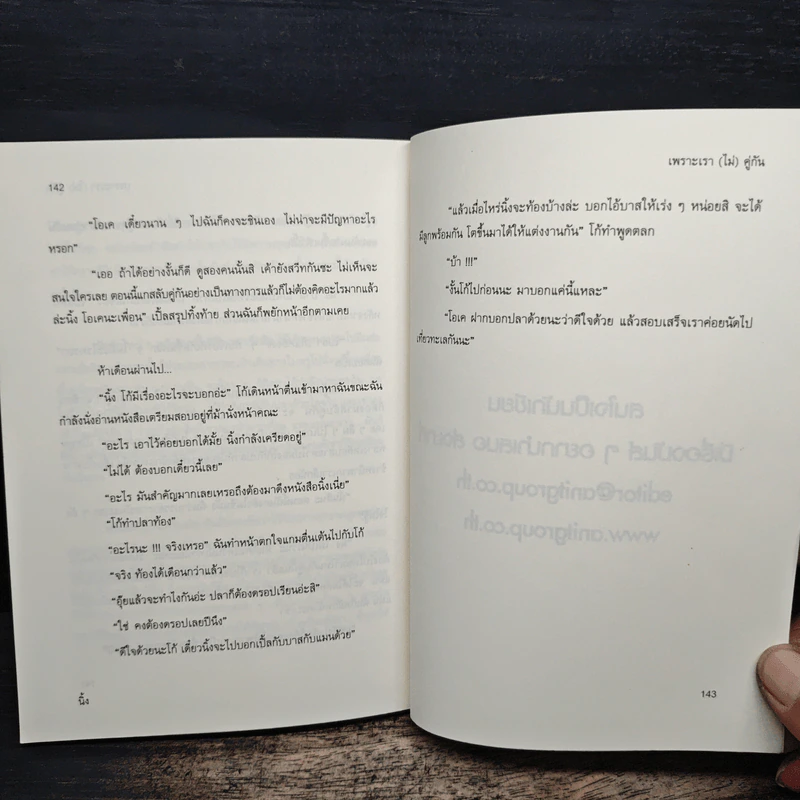 142
"โอเค เดี๋ยวนาน ๆ ไปฉันก็คงจะชินเอง ไม่น่าจะมีปัญหาอะไร
หรอก"
"เออ ถ้าได้อย่างงั้นก็ดี ดูสองคนนั้นสิ เค้ายังสวีทกันซะ ไม่เห็นจะ
สนใจใครเลย ตอนนี้แกสลับคู่กันอย่างเป็นทางการแล้วก็ไม่ต้องคิดอะไรมากแล้ว
ล่ะนิ้ง โอเคนะเพื่อน" เปิ้ลสรุปทิ้งท้าย ส่วนฉันก็พยักหน้าอีกตามเคย
ห้าเดือนผ่านไป...
"นิ้ง โก้มีเรื่องอะไรจะบอกอ่ะ" โก้เดินหน้าตื่นเข้ามาหาฉันขณะฉัน
กำลังนั่งอ่านหนังสือเตรียมสอบอยู่ที่ม้านั่งหน้าคณะ
"อะไร เอาไว้ค่อยบอกได้มั้ย นิ้งกำลังเครียดอยู่"
"ไม่ได้ ต้องบอกเดี๋ยวนี้เลย"
"อะไร มันสำคัญมากเลยเหรอถึงต้องมาดึงหนังสือนิ้งเนี่ย"
"โก้ทำปลาท้อง"
"อะไรนะ !!! จริงเหรอ" ฉันทำหน้าตกใจแกมตื่นเต้นไปกับโก้
"จริง ท้องได้เดือนกว่าแล้ว"
"อุ๊ยแล้วจะทำไงกันอ่ะ ปลาก็ต้องดรอปเรียนอ่ะสิ"
"ใช่ คงต้องดรอปเลยปีนึง"
"ดีใจด้วยนะโก้ เดี๋ยวนิ้งจะไปบอกเปิ้ลกับบาสกับแมนด้วย"
นิ้ง
เพราะเรา (ไม่) คู่กัน
"แล้วเมื่อไหร่นิ้งจะท้องบ้างล่ะ บอกไอ้บาสให้เร่ง ๆ หน่อยสิ จะได้
มีลูกพร้อมกัน โตขึ้นมาได้ให้แต่งงานกัน" โก้ทำพูดตลก
"บ้า !!!"
"งั้นโก้ไปก่อนนะ มาบอกแค่นี้แหละ"
"โอเค ฝากบอกปลาด้วยนะว่าดีใจด้วย แล้วสอบเสร็จเราค่อยนัดไป
เที่ยวทะเลกันนะ"
สนใจเป็นนักเขียน
editor@anitgroup.co.th
www.anitgroup.co.th
143